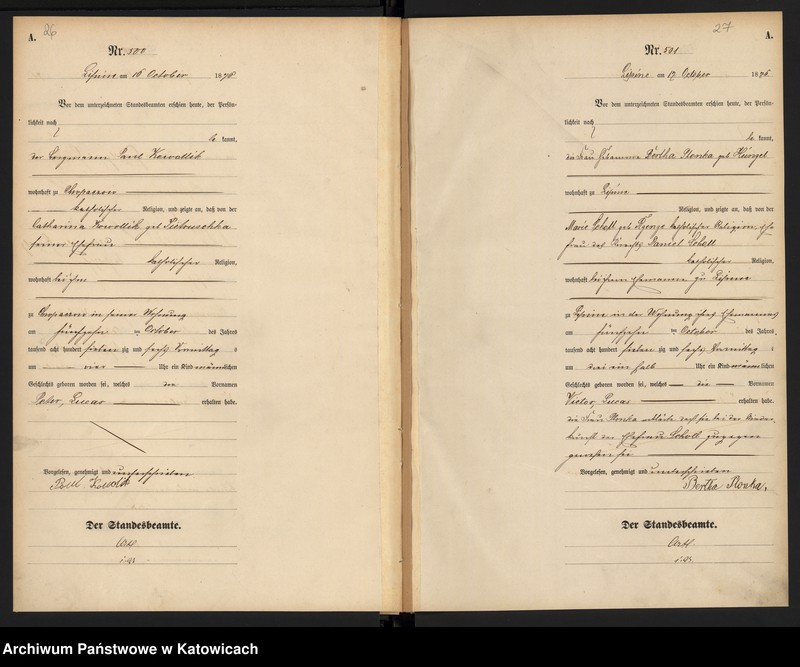 A. 26
Nr. 500
Lipine am 16 October 1876
Vor dem unterzeichneten Standesbeamten erschien heute, der Persön-
lichkeit nach
be kannt,
der Bergmann Paul Kowollik
wohnhaft zu
katholischer Religion, und zeigte an, daß von der
Catharina Kowollik geb
seiner Ehefrau
katholischer Religion,
wohnhaft bei ihm
zu in seiner Wohnung
am fünfzehn ten October des Jahres
tausend acht hundert sieben zig und sechs Vormittag s
um vier Uhr ein Kind männlichen
Geschlechts geboren worden sei, welches die Vornamen
Peter, Lucas erhalten habe.
Vorgelesen, genehmigt und unterschrieben
Paul
Der Standesbeamte.
i. V.
27 A.
Nr. 501
Lipine am 17 October 1876
Vor dem unterzeichneten Standesbeamten erschien heute, der Persön-
lichkeit nach
be kannt,
die Frau Hebamme Bertha Plonka geb Hänsel
wohnhaft zu Lipine
Religion, und zeigte an, daß von der
Marie Scholl geb katholischer Religion, Ehe
frau des Daniel Scholl
katholischer Religion,
wohnhaft bei ihrem Ehemanne zu Lipine
zu Lipine in der Wohnung ihres Ehemannes
am fünfzehn ten October des Jahres
tausend acht hundert sieben zig und sechs Vormittag s
um drei ein halb Uhr ein Kind männlichen
Geschlechts geboren worden sei, welches die Vornamen
Victor, Lucas erhalten habe.
die Frau Plonka erklärte daß sie bei der Nieder-
kunft der Ehefrau Scholl zugegen
gewesen sei
Vorgelesen, genehmigt und unterschrieben
Bertha Plonka.
Der Standesbeamte.
i. V.
Archiwum Państwowe w Katowicach